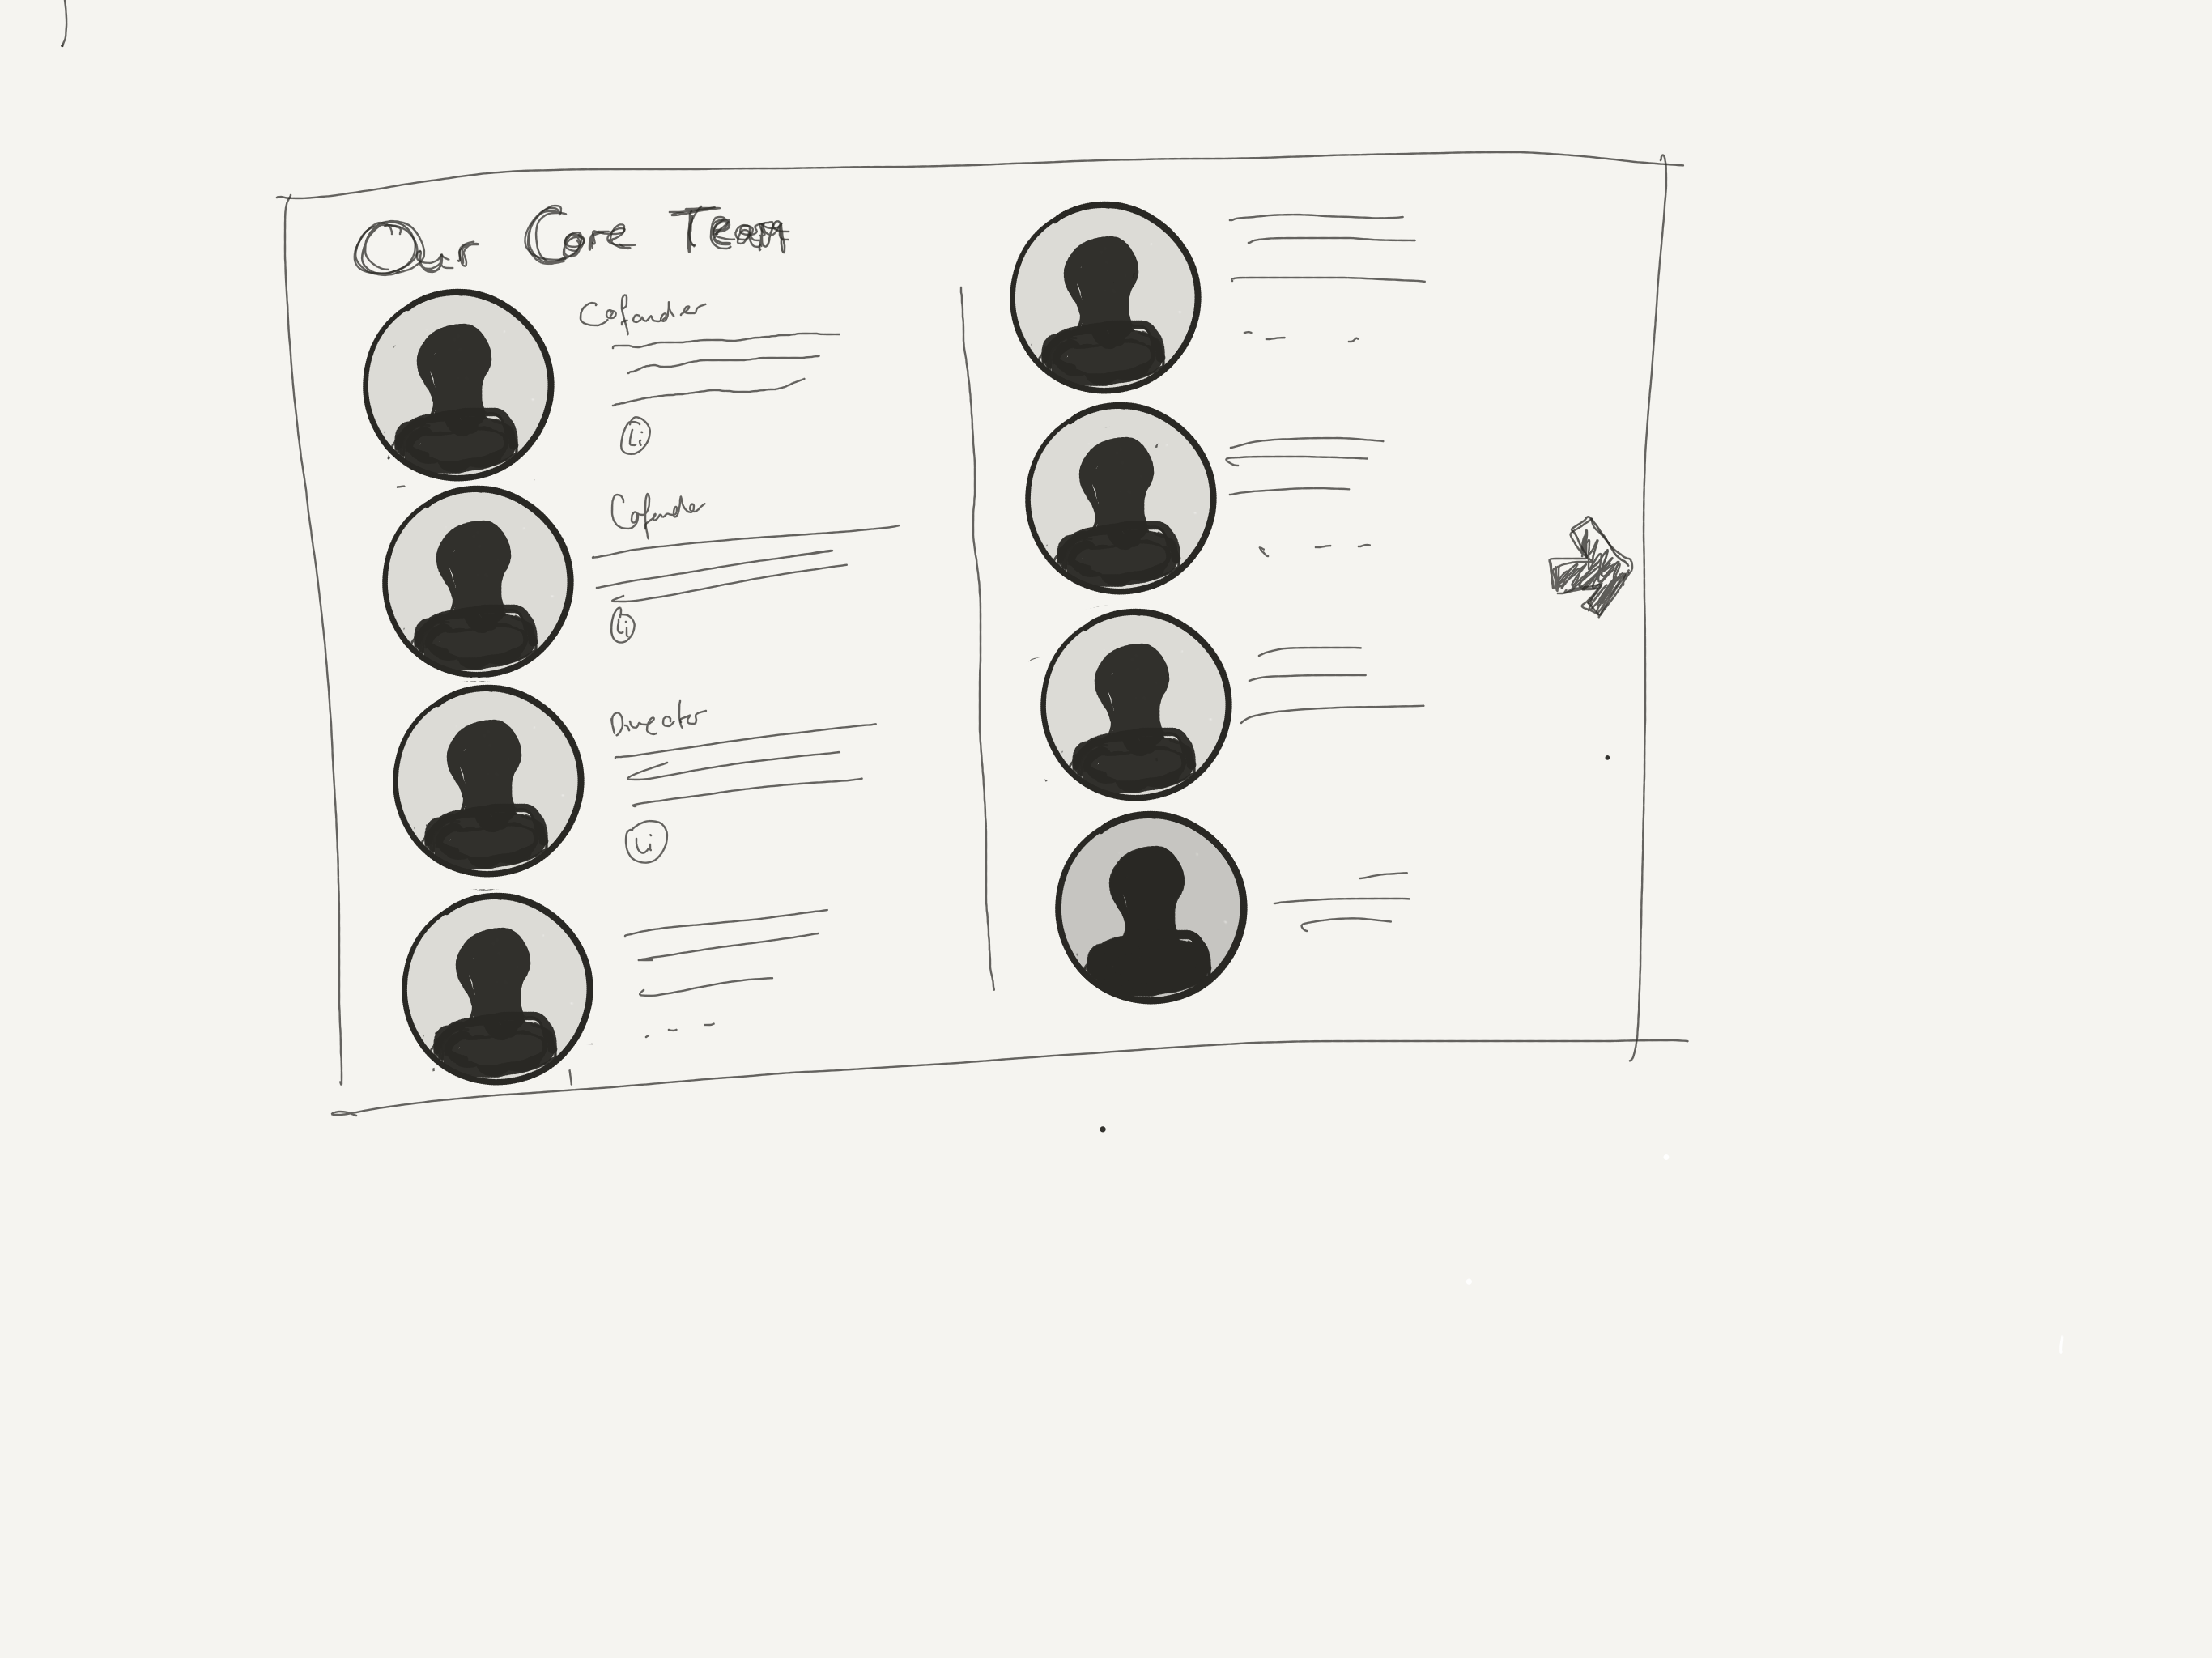 Our Core Team
Cofounder
Li
Cofounder
Li
Director
Li